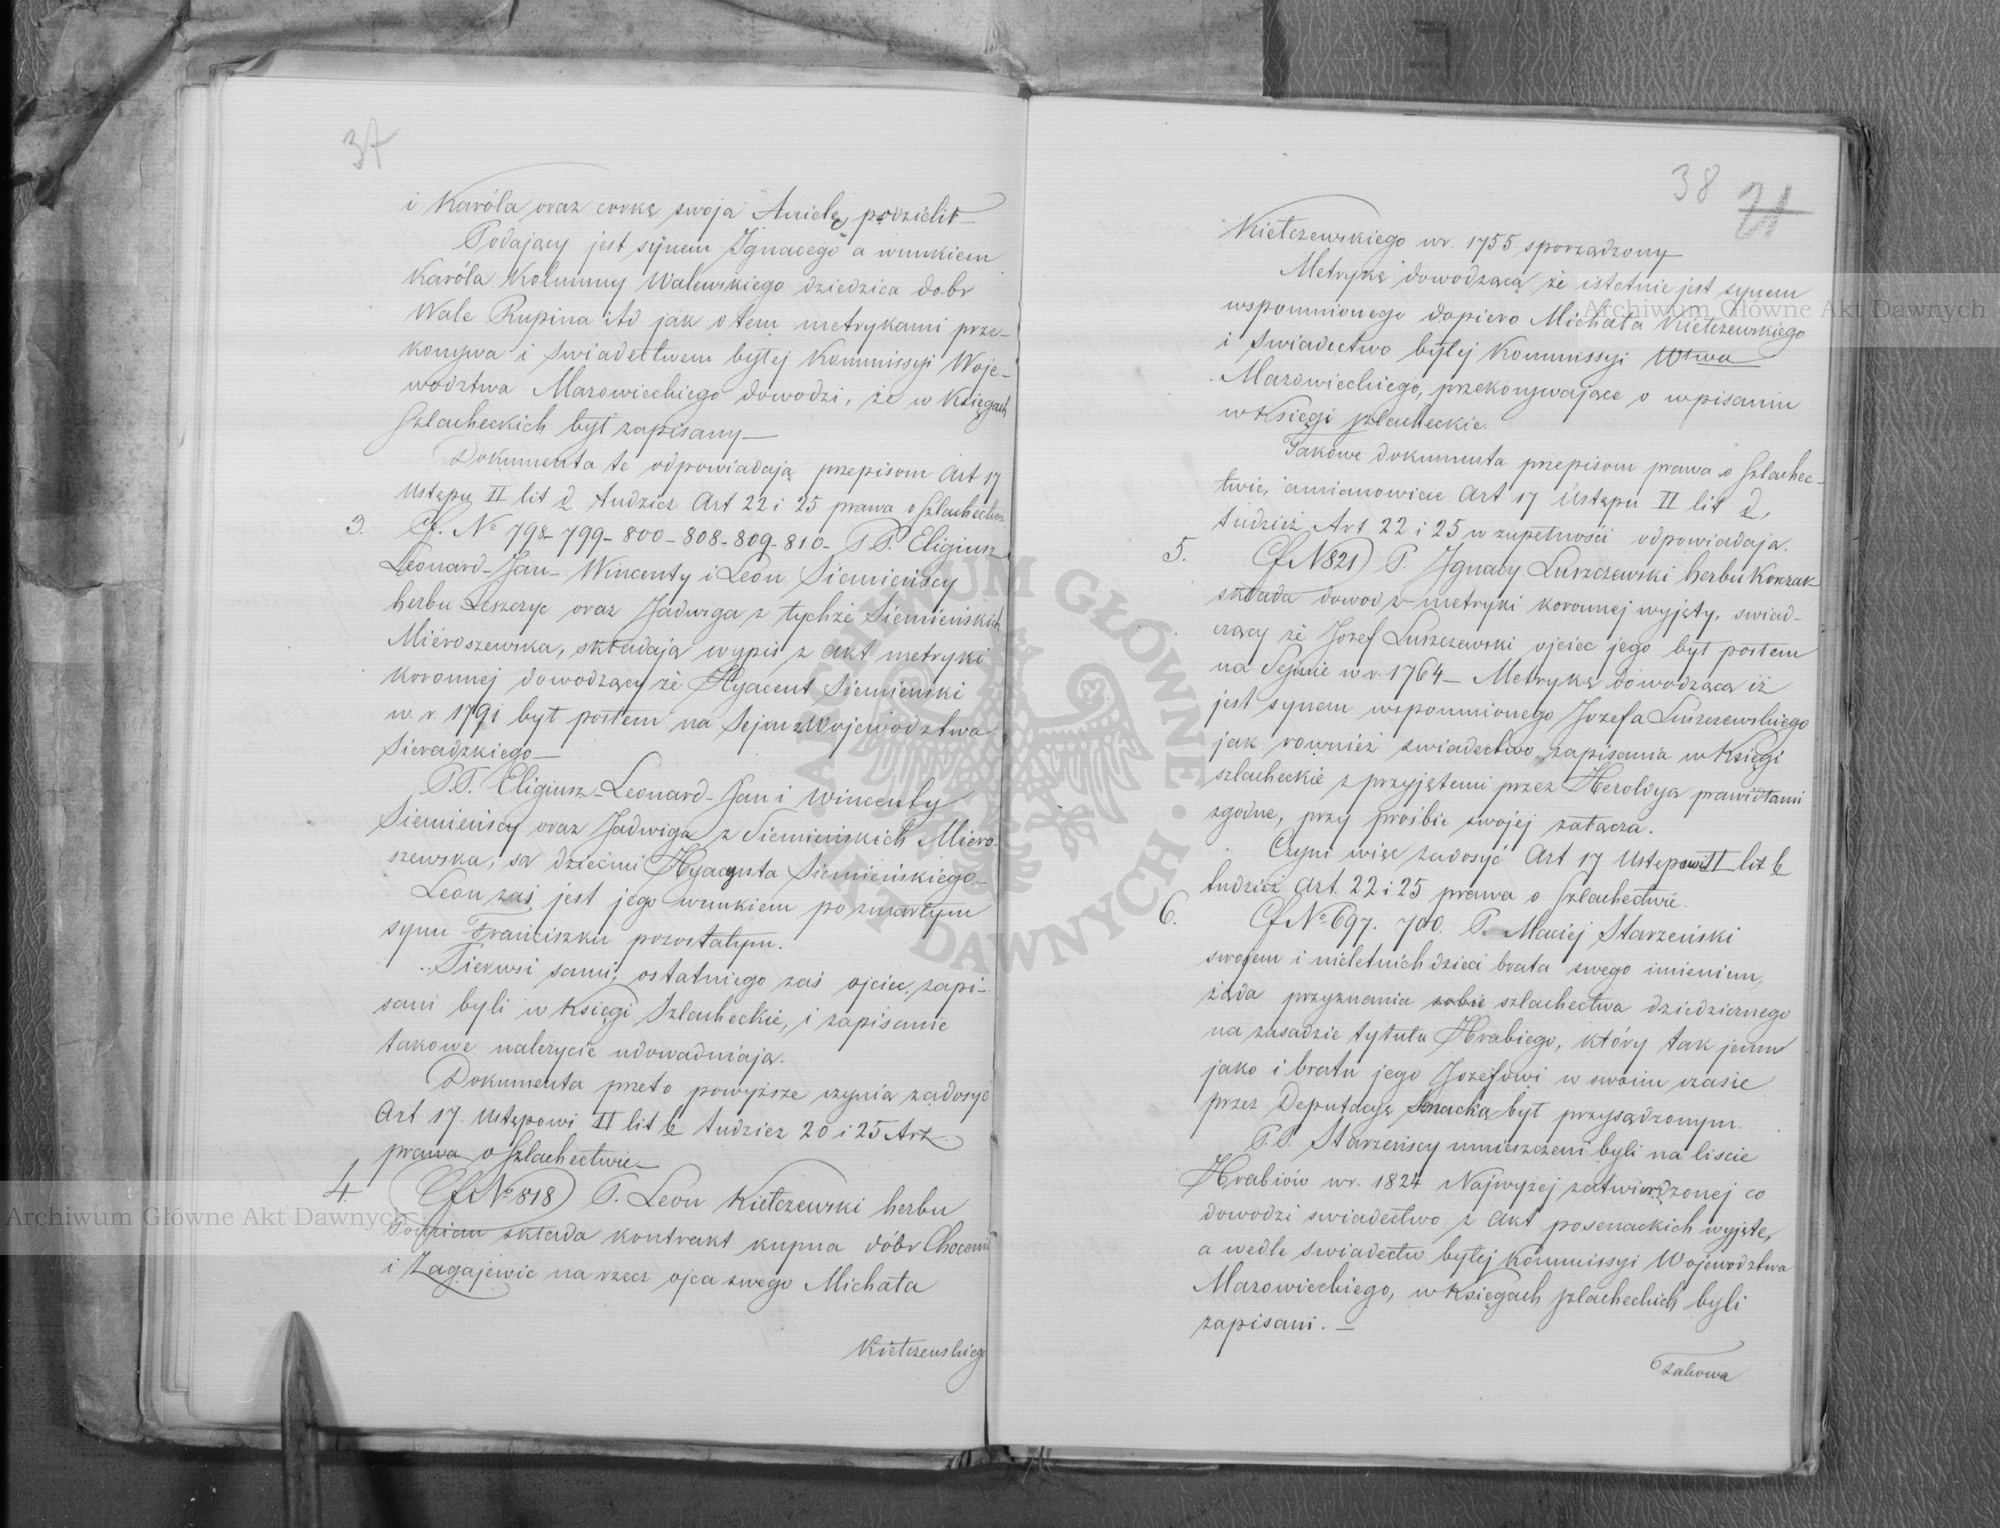 37
i Karóla oraz corkę swoja Anielę podzielił
Podający jest synem Ignacego a wnukiem
Karóla Kolumny Walewskiego dziedzica dobr
Wale Rupina itd jak o tem metrykami prze-
konywa i świadectwem byłej Kommissyi Woje-
wodztwa Mazowieckiego dowodzi, że w Księgach
Szlacheckich był zapisany
Dokumenta te odpowiadają przepisom Art 17
Ustępu II lit d tudzież Art 22 i 25 prawa o Szlachectwie
3. Cf. No 798-799-800-808-809-810- PP. Eligiusz
Leonard-Jan-Wincenty i Leon Siemieńscy
herbu Leszczyc oraz Jadwiga z tychże Siemieńskich
Mieroszewska, składają wypis z akt metryki
Koronnej dowodzący że Hyacent Siemieński
w. r. 1791 był posłem na Sejm z Wojewodztwa
Sieradzkiego
P.P. Eligiusz-Leonard-Jan i Wincenty
Siemieńscy oraz Jadwiga z Siemieńskich Miero-
szewska, są dziećmi Hyacynta Siemieńskiego
Leon zaś jest jego wnukiem po zmarłym
synu Franciszku pozostałym.
Pierwsi sami, ostatniego zaś ojciec, zapi-
sani byli w Księgi Szlacheckie, i zapisanie
takowe należycie udowadniają.
Dokumenta przeto powyższe czynią zadosyć
Art 17. Ustępowi II lit b tudzież 20 i 25 Art.
prawa o Szlachectwie
4 (Cf No 818) P. Leon Kiełczewski herbu
Pomian składa kontrakt kupna dóbr Chocem
i Zagajewic na rzecz ojca swego Michała
Kiełczewskiego
38
Kiełczewskiego w r. 1755 sporządzony
Metrykę dowodzącą że istotnie jest synem
wspomnionego dopiero Michała Kiełczewskiego
i świadectwo byłej Kommissyi Wtwa
Mazowieckiego, przekonywające o wpisaniu
w Księgi szlacheckie.
Takowe dokumenta przepisom prawa o Szlachec-
twie, amianowicie Art 17 Ustępu II lit d,
tudzież Art 22 i 25 w zupełności odpowiadają.
5. Cf N 821) P. Ignacy Luszczewski herbu Korczak
składa dowod z metryki koronnej wyjęty, swiad-
czący że Jozef Luszczewski ojciec jego był posłem
na Sejmie w r. 1764 - Metrykę dowodzącą iż
jest synem wspomnionego Jozefa Luszczewskiego
jak rownież swiadectwo zapisania w Księgi
szlacheckie z przyjętemi przez Heroldyą prawidłami
zgodne, przy prośbie swojej załącza.
Czyni więc zadosyć Art 17 Ustępowi II lit b
tudzież Art. 22 i 25 prawa o Szlachectwie.
6. Cf No 697. 700. P. Maciej Starzeński
swojem i nieletnich dzieci brata swego imieniem,
żąda przyznania sobie szlachectwa dziedzicznego
na zasadzie tytułu Hrabiego, który tak jemu
jako i bratu jego Jozefowi w swoim czasie
przez Deputacyą Senacką był przysądzonym.
P.P. Starzeńscy umieszczeni byli na liscie
Hrabiów w r. 1824 Najwyżej zatwierdzonej co
dowodzi swiadectwo z Akt posenackich wyjęte,
a wedle swiadectw byłej Kommissyi Wojewodztwa
Mazowieckiego, w Księgach szlacheckich byli
zapisani. -
Takowa
Archiwum Główne Akt Dawnych
Archiwum Główne Akt Dawnych
ARCHIWUM GŁÓWNE • AKT DAWNYCH •